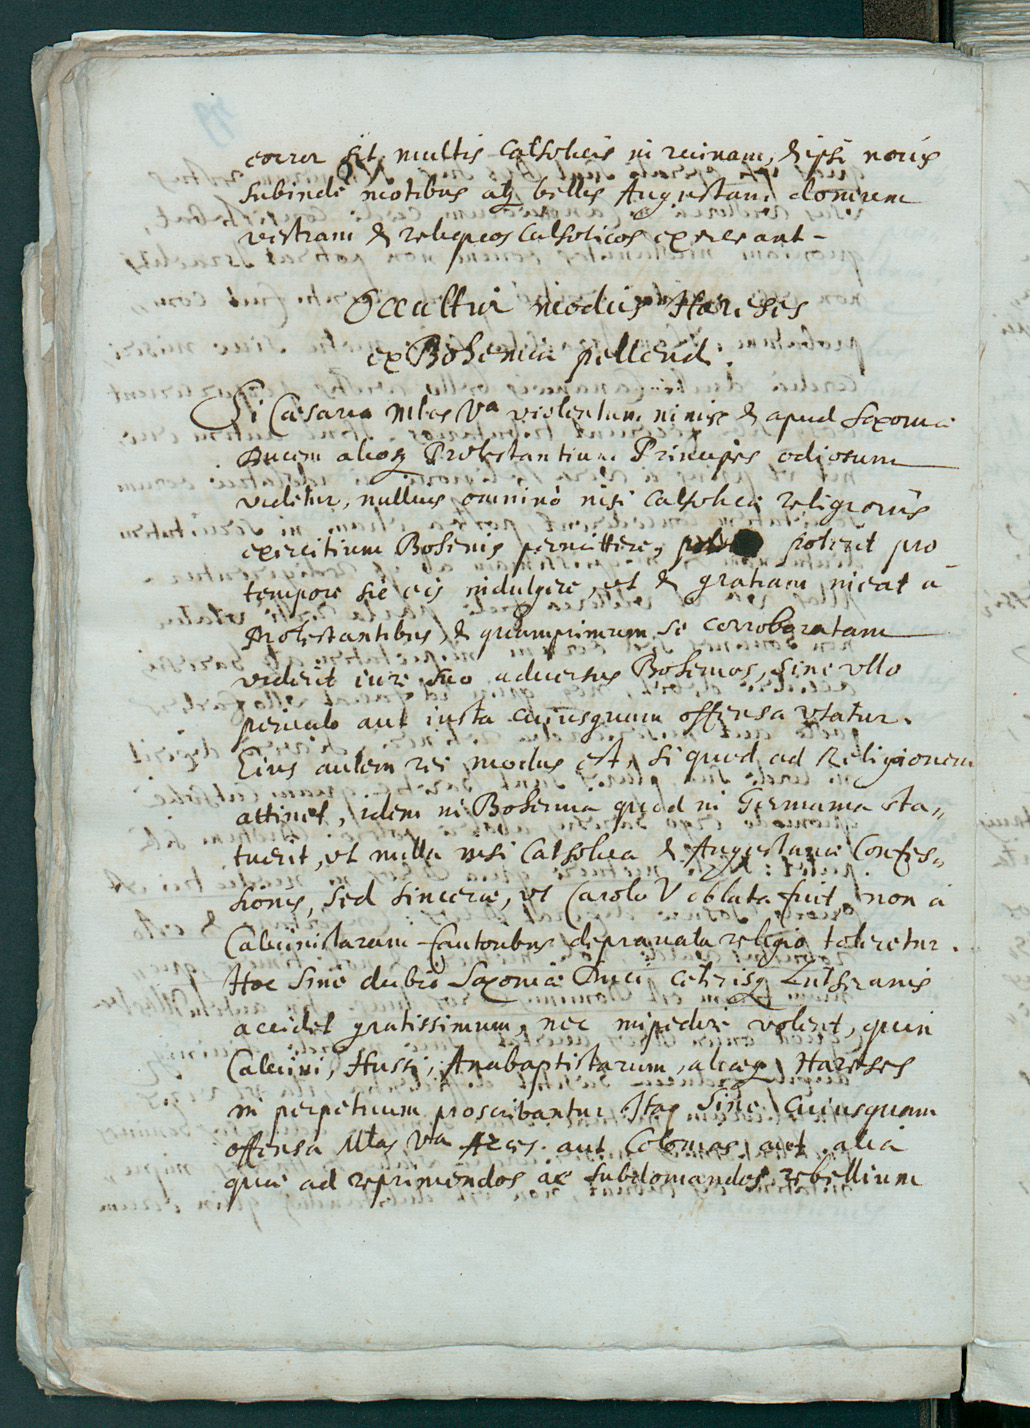 error sit multis Catholicis in ruinam, & ipsi novis
subinde motibus atq bellis Augustam domum
vestram & reliquos Catholicos exerceant –
Occultus modus Hæreses
ex Bohemia pellendi.
Si Cæsarea Mtas Va violentum nimis & apud Saxoniæ
Ducem aliosq Protestantium Principes odiosum
videtur, nullius omninò nisi Catholicæ religionis
exercitium Bohemis permittere, poterit pro
tempore sic eis indulgere, ut & gratiam ineat à
Protestantibus, & quamprimum se corroboratam
viderit iure suo adversus Bohemos, sine vllo
periculo aut iusta cuiusquam offensa vtatur.
Eius autem rei modus est, si quod ad Religionem
attinet, idem in Bohemia quod in Germania sta„
tuerit, vt nulla nisi Catholica & Augustanæ Confes„
sionis, sed sinceræ, vt Carolo V oblata fuit, non à
Calvinistarum fautoribus depravata religio toleretur.
Hoc sine dubio Saxoniæ Duci cetrisq Lutheranis
accidet gratissimum, nec impedire volent, quin
Calvini, Hussi, Anabaptistarum, aliæq Hæreses
in perpetuum proscribantur. Itaq sine cuiusquam
offensa Mtas Va Arces aut Colonias aut alia
quæ ad reprimendos ac subdomandos rebellium